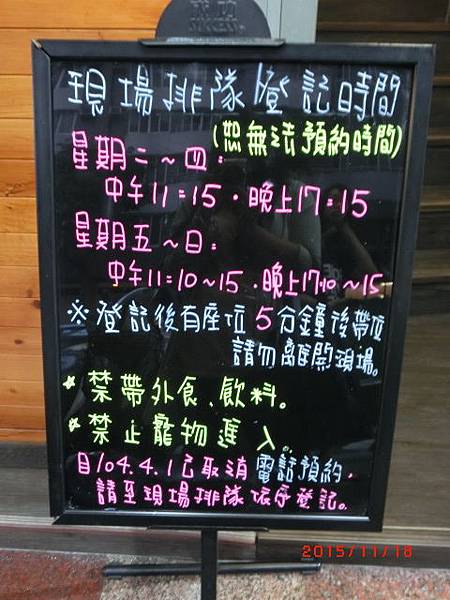 現場排隊登記時間
(恕無法預約時間)
星期二~四:
中午11:15.晚上17:15
星期五~日:
中午11:10~15.晚上17:10~15
※登記後有座位5分鐘後帶位
請勿離開現場。
*禁帶外食、飲料。
*禁止寵物進入。
自104.4.1已取消電話預約.
請至現場排隊依序登記。
2015/11/18